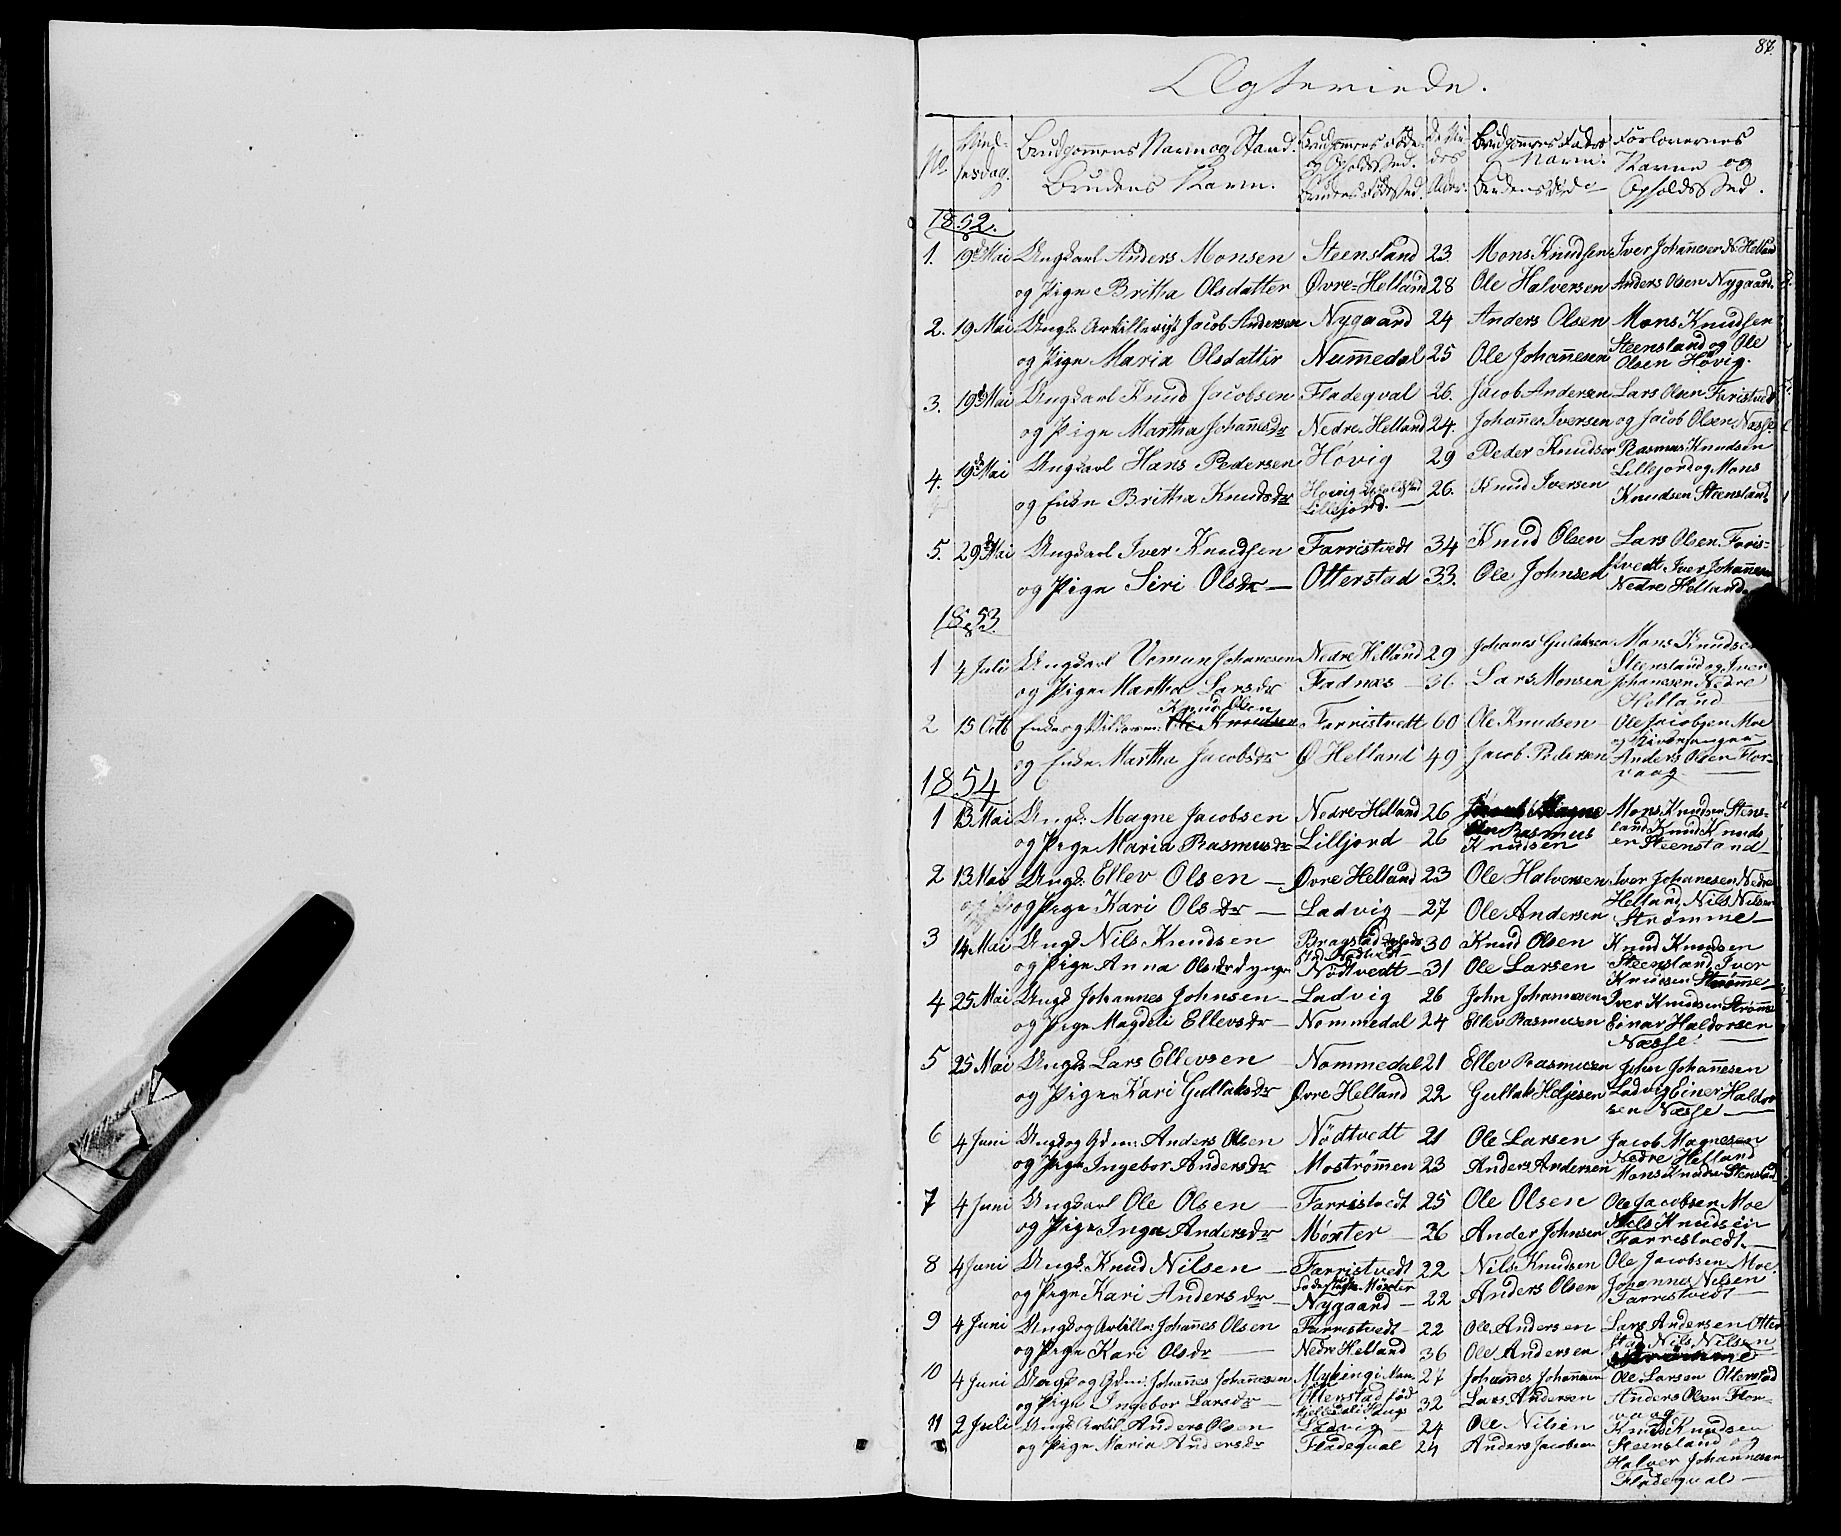 87.
Ægteviede.
No
Brudgommens Navn og Stand.
Brudens Navn.
Brudgommens Føde og Opholdssted.
Brudens Fødested.
Brudgommens Faders Navn.
Brudens dito
Forlovernes Navne og Opholdssted.
1852.
1. 19de Mai Ungkarl Anders Monsen Steensland 23 Mons Knudsen Iver Johannesen N. Helland
og Pige Britha Olsdatter Øvre-Helland 28 Ole Halversen Anders Olsen Nygaard.
2. 19 Mai Ungk: Artillerist Jacob Andersen Nygaard 24 Anders Olsen Mons Knudsen
og Pige Maria Olsdatter Nummedal 25 Ole Johannesen Steensland og Ole Olsen Høvig.
3. 19de Mai Ungkarl Knud Jacobsen Fladeqval 26. Jacob Andersen Lars Olsen Faristvedt
og Pige Martha Johannesdr Nedre-Helland 24. Johannes Iversen og Jacob Olsen Næsse
4. 19de Mai Ungkarl Hans Pedersen Høvig 29 Peder Knudsen Rasmus Knudsen Lillejord og Mons
og Enke Britha Knudsdr Høvig Opholdsted Lillejord. 26. Knud Iversen Knudsen Steensland
5. 29de Mai Ungkarl Iver Knudsen Farristvedt 34 Knud Olsen Lars Olsen Faris-
og Pige Siri Olsdr Otterstad 33. Ole Johnsen tvedt Iver Johannesen Nedre Helland
1853
1 4 Juli Ungkarl Vemun Johanesen Nedre Helland 29 Johanes Gulaksen Mons Knudsen
og Pige Martha Larsdr Fadnæs 36 Lars Monsen Steensland og Iver Johannesen Nedre Helland
2 15 Octb Enke og Kaldsmand Knud Olsen Farristvedt 60 Ole Knudsen Ole Jacobsen Moe
og Enke Martha Jacobsdr Ø Helland 49 Jacob Pedersen og Kirkesanger Anders Olsen Florvaag
1854
1 13 Mai Ungk: Magne Jacobsen Nedre Helland 26 Mons Knudsen Stens-
og Pige Maria Rasmusdr Lilljord 26 Rasmus Knudsen land Knud Knudsen Steensland
2 13 Mai Ungk: Ellev Olsen Øvre Helland 23 Ole Halversen Iver Johanesen Nedre
og Pige Kari Olsdr Ladvig 27 Ole Andersen Helland Nils Nilsen Strømme
3 14 Mai Ungk Nils Knudsen Bragstad 30 Knud Olsen Knud Knudsen
og Pige Anna Olsdr d yngr Nödtvedt 31 Ole Larsen Steensland Iver Knudsen Strømme
4 25 Mai Ungk Johannes Johnsen Ladvig 26 John Johannesen Iver Knudsen Strømme
og Pige Magdeli Ellevsdr Nommedal 24 Ellev Rasmusen Einar Haldorsen Næsse
5 25 Mai Ungk Lars Ellevsen Nommedal 21 Ellev Rasmusen John Johannesen
og Pige Kari Gullaksdr Øvre Helland 22 Gullak Heljesen Ladvig Einer Haldorsen Næsse
6 4 Juni Ungk og Gdm: Anders Olsen Nödtvedt 21 Ole Larsen Jacob Magnesen Nedre Helland
og Pige Ingebor Andersdr Moströmmen 23 Anders Andersen Mons Knudsen Stensland
7 4 Juni Ungkarl Ole Olsen Farristvedt 25 Ole Olsen Ole Jacobsen Moe
og Pige Inga Andersdr Mørter 36 Ander Johnsen Nils Knudsen Farristvedt
8 4 Juni Ungk: Knud Nilsen Farristvedt 22 Nils Knudsen Ole Jacobsen Moe
og Pige Kari Andersdr Nygaard 22 Anders Olsen Johannes Nilsen Farristvedt
9 4 Juni Ungk og Artille: Johannes Olsen Farristvedt 22 Ole Andersen Lars Andersen Otter
og Pige Kari Olsdr Nedre Helland 36 Ole Andersen stad Nils Nilsen Strømme
10 4 Juni Ungk og Gdm: Johannes Johannesen Myking i Man. 27 Johannes Johannesen Ole Larsen Oterstad
og Pige Ingebor Larsdr Otterstad 32 Lars Andersen Anders Olsen Florvaag
11 2 Juli Ungk: Artil: Anders Olsen Ladvig 24 Ole Nilsen Knud Knudsen
og Pige Maria Andersdr Fladeqval 24 Anders Jacobsen Steensland og Halver Johannesen Fladeqval